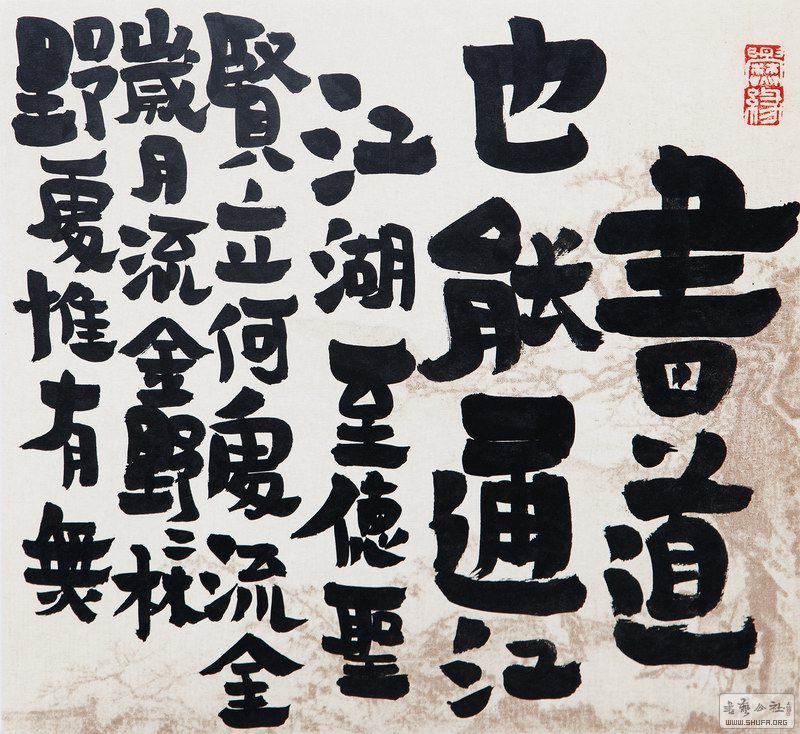 書道
也能通江
江湖至德聖
賢立何處流金
歲月流金野
野處惟有無
书艺公社
WWW.SHUFA.ORG